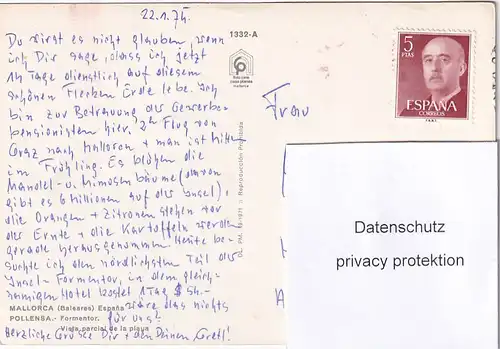 22.1.75.
1332-A
Du wirst es nicht glauben wenn
ich Dir sage, dass ich jetzt
14 Tage dienstlich auf diesem
schönen Flecken Erde lebe. Ich
bin zur Betreuung der Gewerbe-
pensionisten hier. 2h Flug von
Graz nach Mallorca + man ist mitten
im Frühling. Es blühen die
Mandel- u. Mimosenbäume (davon
gibt es 6 Millionen auf der Insel),
die Orangen + Zitronen stehen vor
der Ernte + die Kartoffeln werden
gerade herausgenommen. Heute be-
suchte ich den nördlichsten Teil der
Insel - Formentor, in dem gleich-
namigen Hotel kostet 1 Tag $ 54.-
MALLORCA (Baleares) España
wäre das nichts
POLLENSA.- Formentor.
für uns?
Vista parcial de la playa
Herzliche Grüsse Dir + den Deinen Gretl!
Reproducción Prohibida
Frau
5
PTAS
ESPAÑA
CORREOS
Datenschutz
privacy protektion